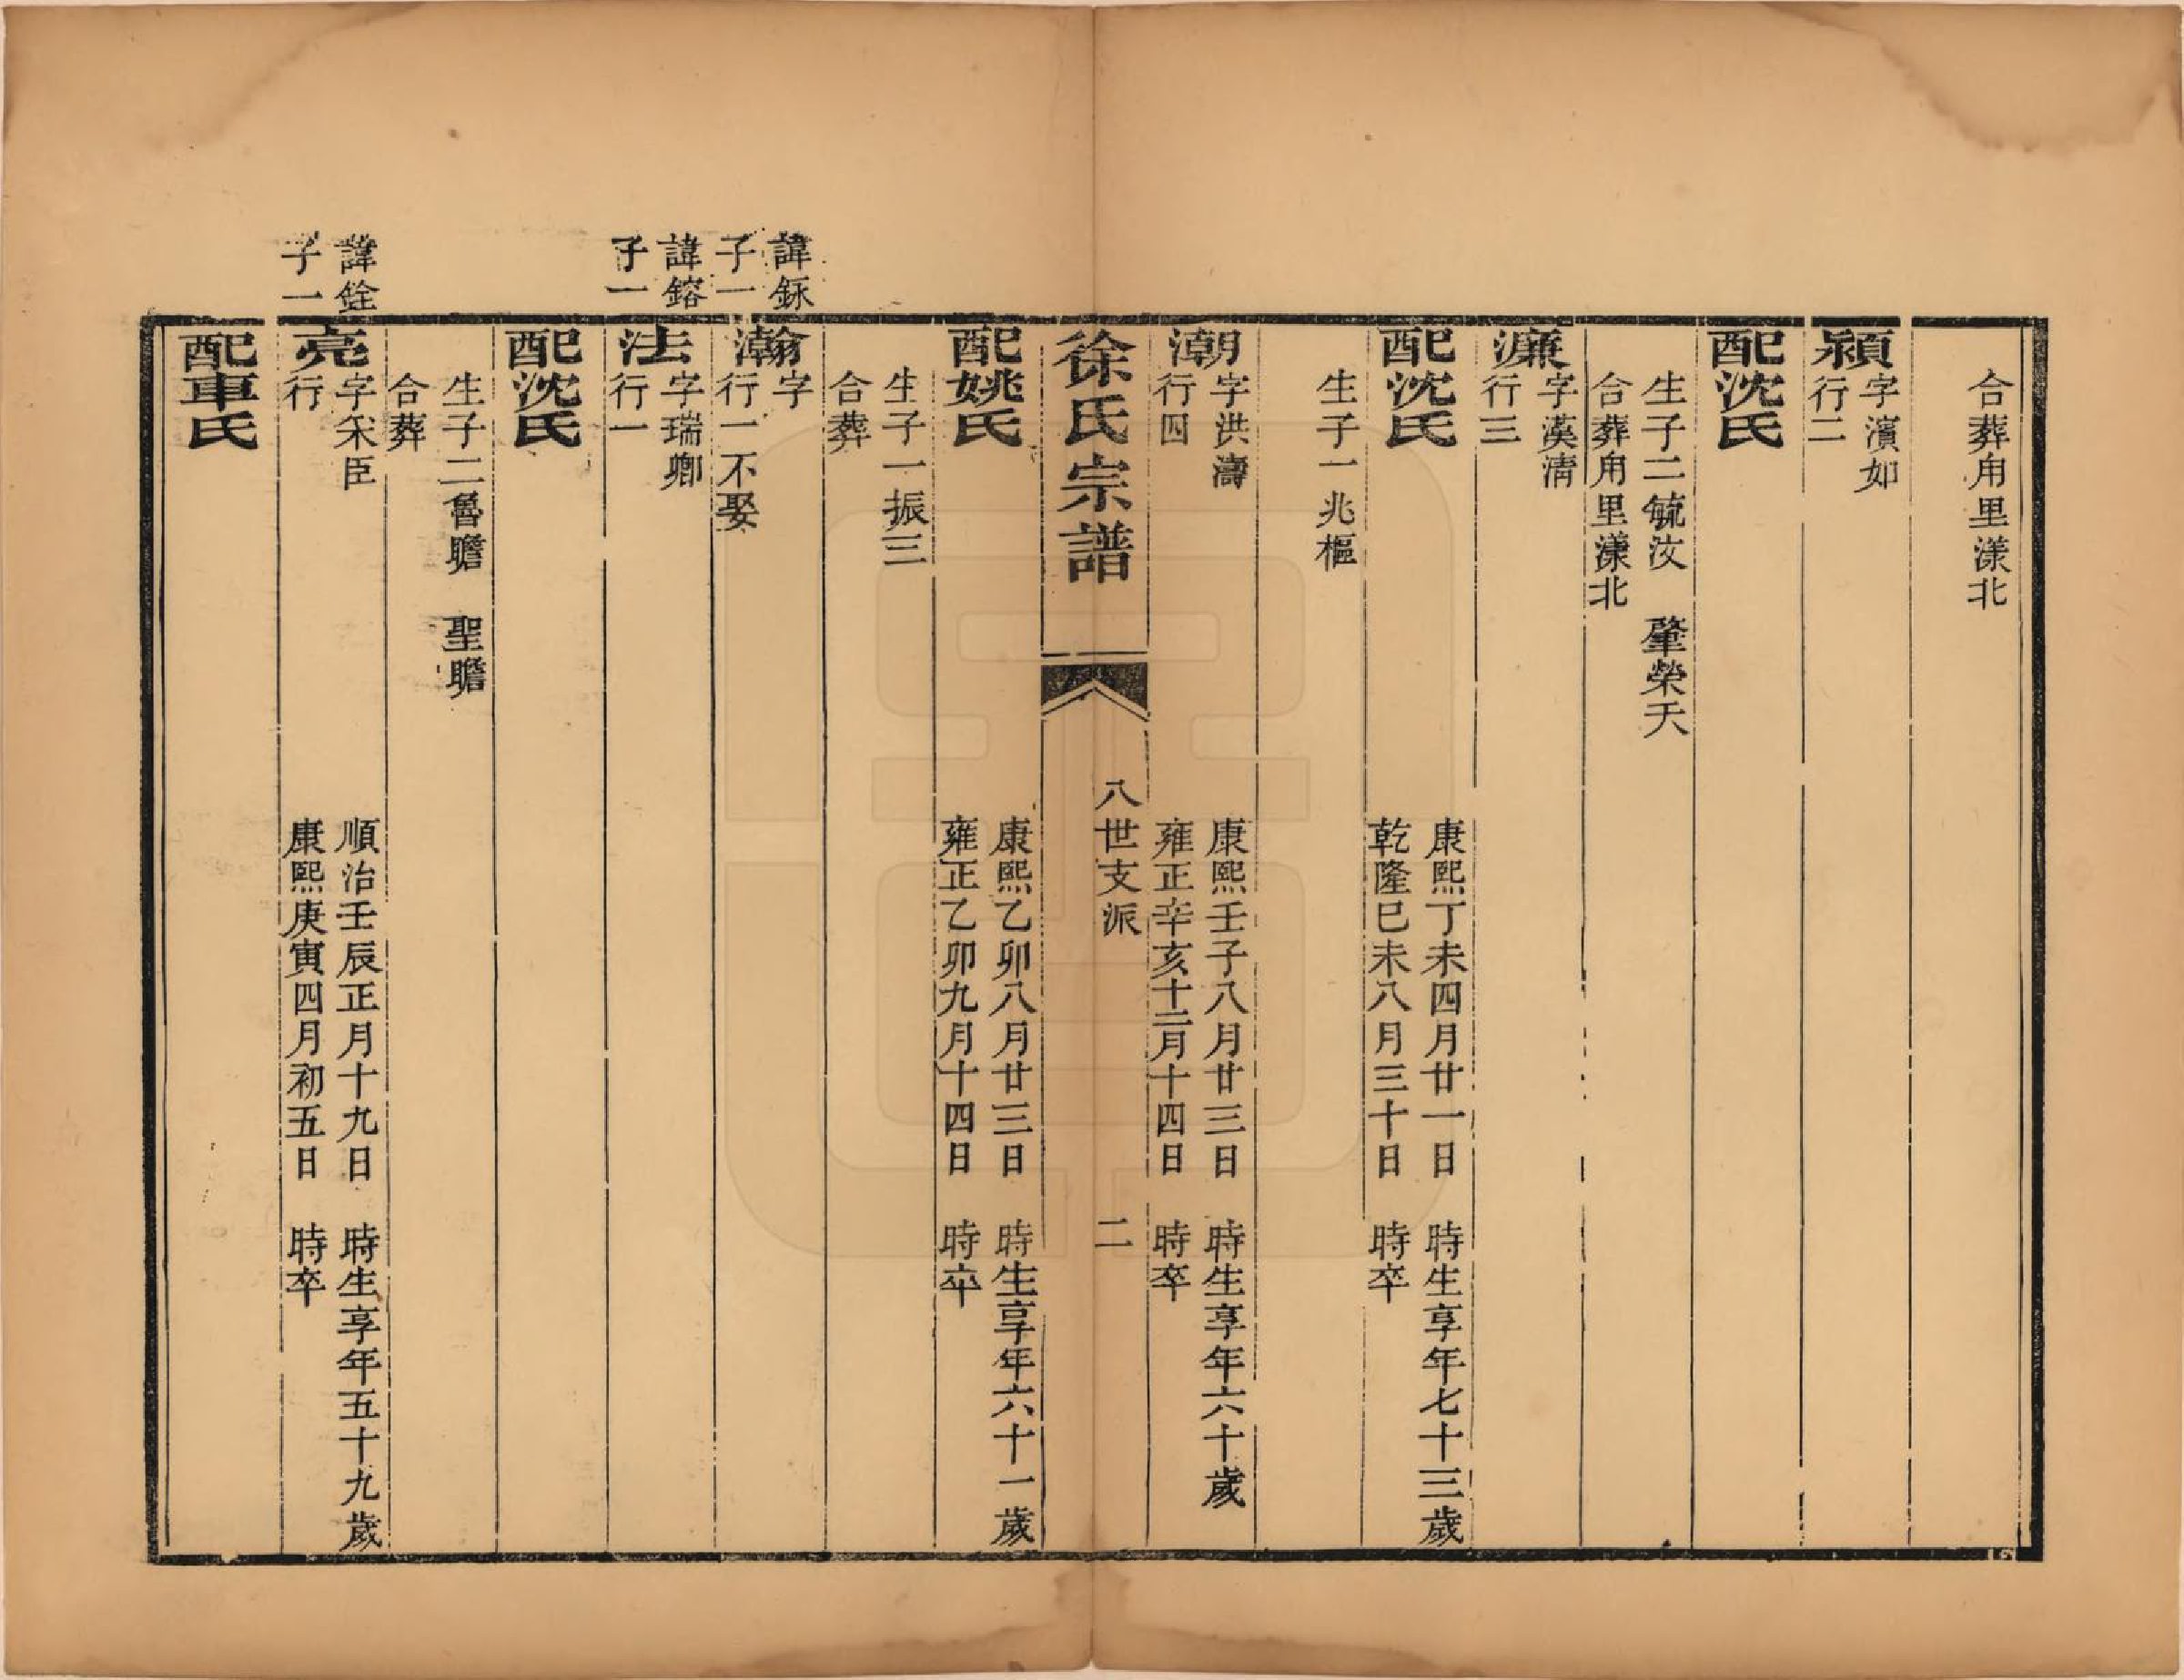 合葬甪里漾北
潁
字濱如
行二
配沈氏
生子二毓汝　肇榮夭
合葬甪里漾北
濂
字漢清
行三
配沈氏
康熙丁未四月廿一日　時生享年七十三歲
乾隆已未八月三十日　時卒
生子一兆樞
潮
字洪濤
行四
康熙壬子八月廿三日　時生享年六十歲
雍正辛亥十二月十四日　時卒
徐氏宗譜
八世支派
二
配姚氏
康熙乙卯八月廿三日　時生享年六十一歲
雍正乙卯九月十四日　時卒
生子一振三
合葬
諱銾
子一
瀚
字
行一不娶
諱鎔
子一
法
字瑞卿
行一
配沈氏
生子二魯瞻　聖瞻
合葬
諱銓
子一
亮
字宋臣
行
順治壬辰正月十九日　時生享年五十九歲
康熙庚寅四月初五日　時卒
配車氏